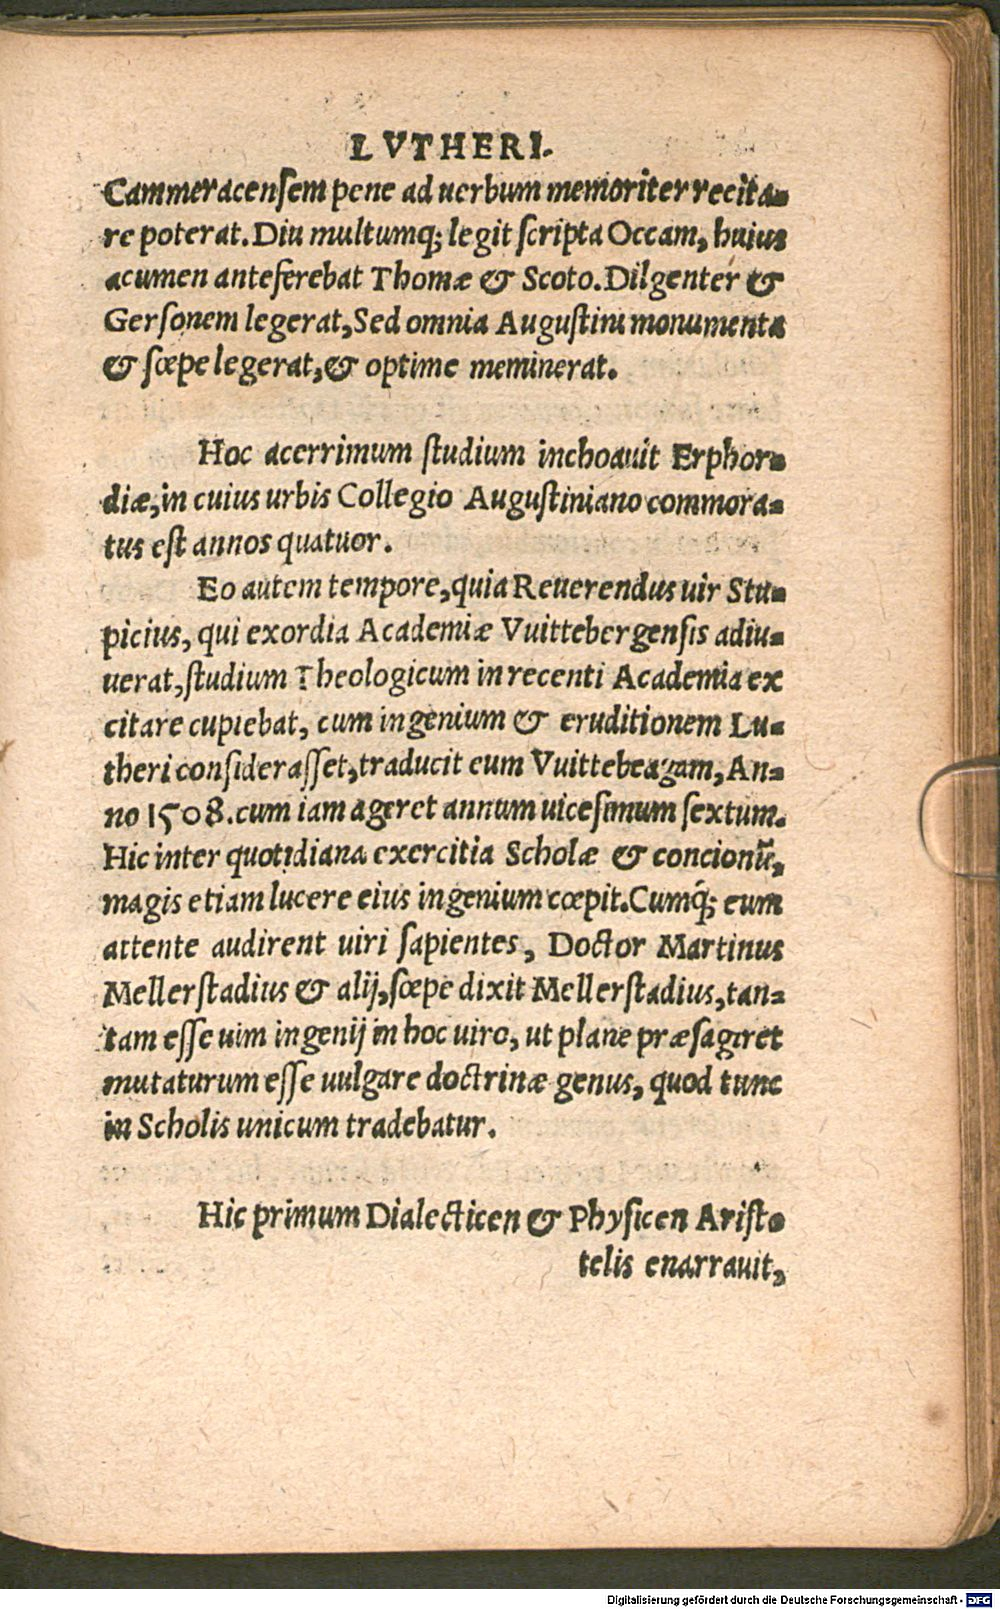 LVTHERI.
Cammeracensem pene ad uerbum memoriter recita-
re poterat. Diu multumq; legit scripta Occam, huius
acumen anteferebat Thomæ & Scoto. Dilgenter &
Gersonem legerat, Sed omnia Augustini monumenta
& sœpe legerat, & optime meminerat.
Hoc acerrimum studium inchoauit Erphor-
diæ, in cuius urbis Collegio Augustiniano commora-
tus est annos quatuor.
Eo autem tempore, quia Reuerendus uir Stu-
picius, qui exordia Academiæ Vuittebergensis adiu-
uerat, studium Theologicum in recenti Academia ex
citare cupiebat, cum ingenium & eruditionem Lu-
theri considerasset, traducit eum Vuittebeagam, An-
no 1508. cum iam ageret annum uicesimum sextum.
Hic inter quotidiana exercitia Scholæ & concionū,
magis etiam lucere eius ingenium cœpit. Cumq́; eum
attente audirent uiri sapientes, Doctor Martinus
Mellerstadius & alij, sœpe dixit Mellerstadius, tan-
tam esse uim ingenij in hoc uiro, ut plane præsagiret
mutaturum esse uulgare doctrinæ genus, quod tunc
in Scholis unicum tradebatur.
Hic primum Dialecticen & Physicen Aristo
telis enarrauit,
Digitalisierung gefördert durch die Deutsche Forschungsgemeinschaft - DFG